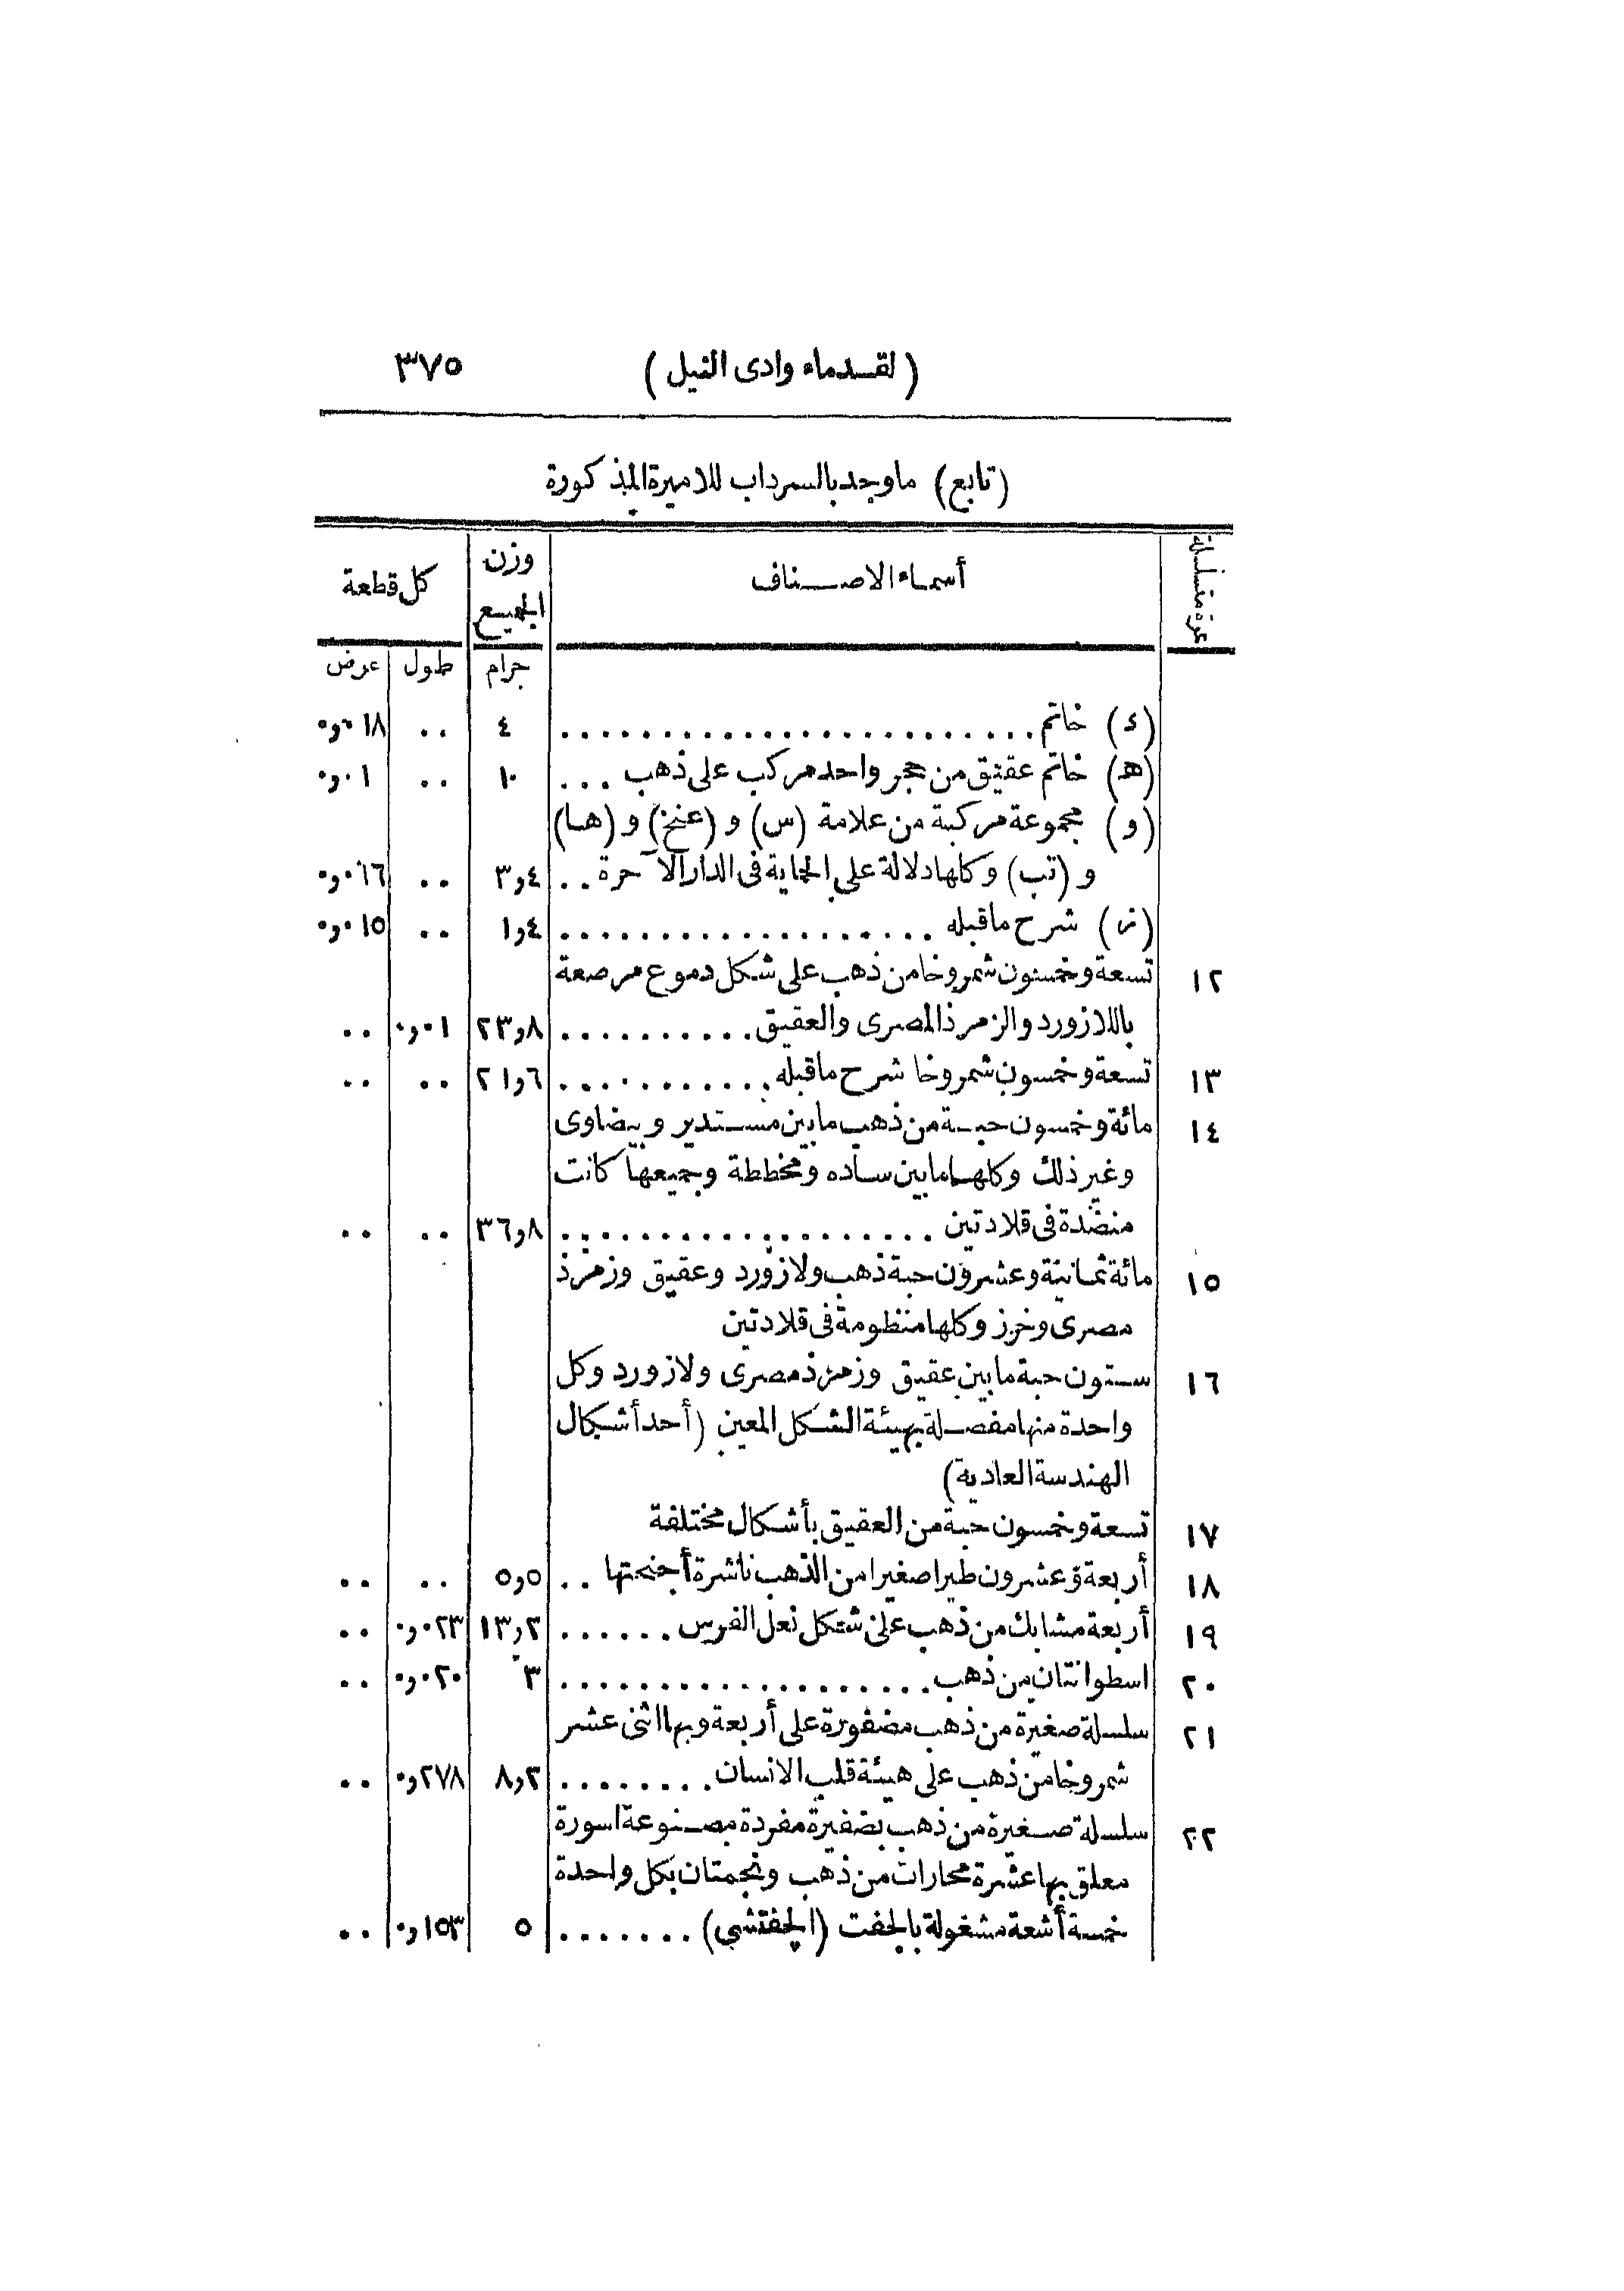 (لقدماء وادى النيل) ٣٧٥
(تابع) ماوجد بالسرداب للاميرة المذكورة
نمرة متسلسلة أسماء الاصناف وزن الجميع كل قطعة
جرام طول عرض
(د) خاتم ........................ ٤ .. ٠١٨و٠
(هـ) خاتم عقيق من حجر واحد مركب على ذهب ... ١٠ .. ٠١و٠
(و) مجموعة مركبة من علامة (س) و (عنخ) و (هـا)
و (تب) وكلها دلالة على الحماية فى الدار الآخرة .. ٤و٣ .. ٠١٦و٠
(ز) شرح ماقبله ................... ٤و١ .. ٠١٥و٠
١٢ تسعة وخمسون شمروخا من ذهب على شكل دموع مرصعة
باللازورد والزمرذ المصرى والعقيق .......... ٨و٢٣ ٠١و٠ ..
١٣ تسعة وخمسون شمروخا شرح ماقبله ........... ٦و٢١ .. ..
١٤ مائة وخمسون حبة من ذهب مابين مستدير وبيضاوى
وغير ذلك وكلها مابين ساده ومخططة وجميعها كانت
منضدة فى قلادتين ................... ٨و٣٦ .. ..
١٥ مائة ثمانية وعشرون حبة ذهب ولازورد وعقيق وزمرذ
مصرى وخرز وكلها منظومة فى قلادتين
١٦ ستون حبة مابين عقيق وزمرذ مصرى ولازورد وكل
واحدة منها مفصلة بهيئة الشكل المعين (أحد أشكال
الهندسة العادية)
١٧ تسعة وخمسون حبة من العقيق بأشكال مختلفة
١٨ أربعة وعشرون طيرا صغيرا من الذهب ناشرة أجنحتها .. ٥و٥ .. ..
١٩ أربعة مشابك من ذهب على شكل نعل الفرس ...... ٢و١٣ ٠٢٣و٠ ..
٢٠ اسطوانتان من ذهب ................... ٣ ٠٢٠و٠ ..
٢١ سلسلة صغيرة من ذهب مضفورة على أربعة وبها اثنى عشر
شمروخا من ذهب على هيئة قلب الانسان ........ ٢و٨ ٢٧٨و٠ ..
٢٢ سلسلة صغيرة من ذهب بضفيرة مفردة مصنوعة اسورة
معلق بها عشرة محارات من ذهب ونجمتان بكل واحدة
خمسة أشعة مشغولة بالجفت (الجفتشى) ....... ٥ ١٥٣و٠ ..